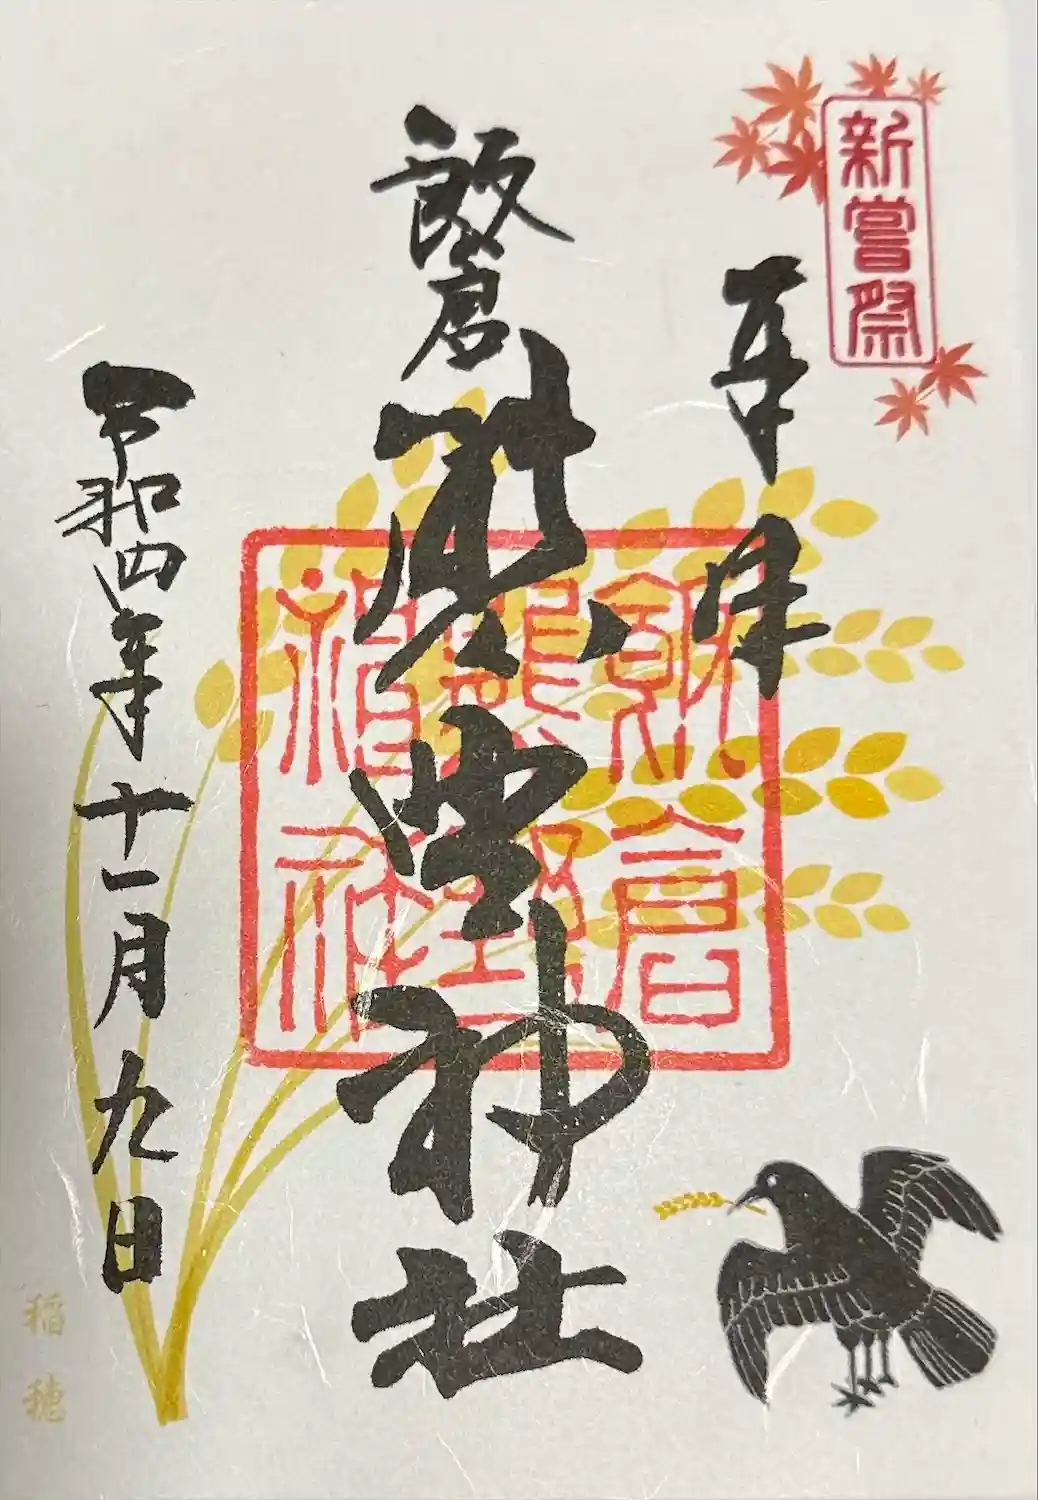 新嘗祭
奉拝
飯倉
熊野神社
飯倉
熊野
神社
令和四年十一月九日
稲穂